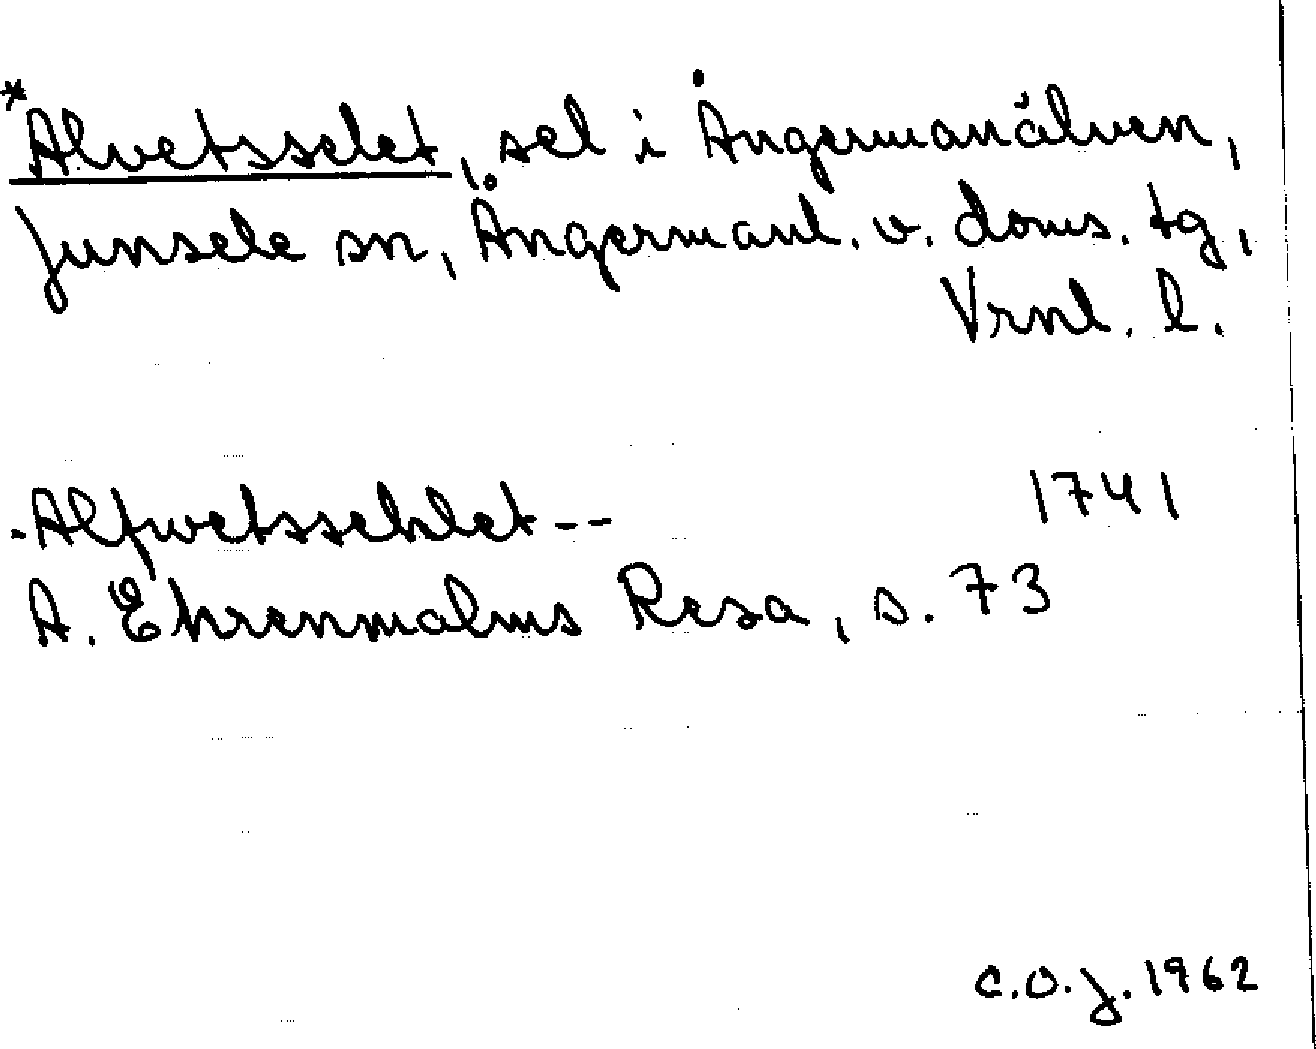 *Alvetsselet, sel i Ångermanälven,
Junsele sn, Ångermanl. v. doms. tg,
Vrnl. l.
-Alfwetssehlet-- 1741
A. Ehrenmalms Resa, s. 73
C.O.J. 1962